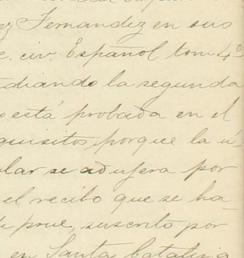 Fernandez en sus
civ. Español tom 4º
diando la segunda
está probada en el
quisitos, porque la ú
lar se adujera por
el recibo que se ha
suscrito por
en Santa Catalina